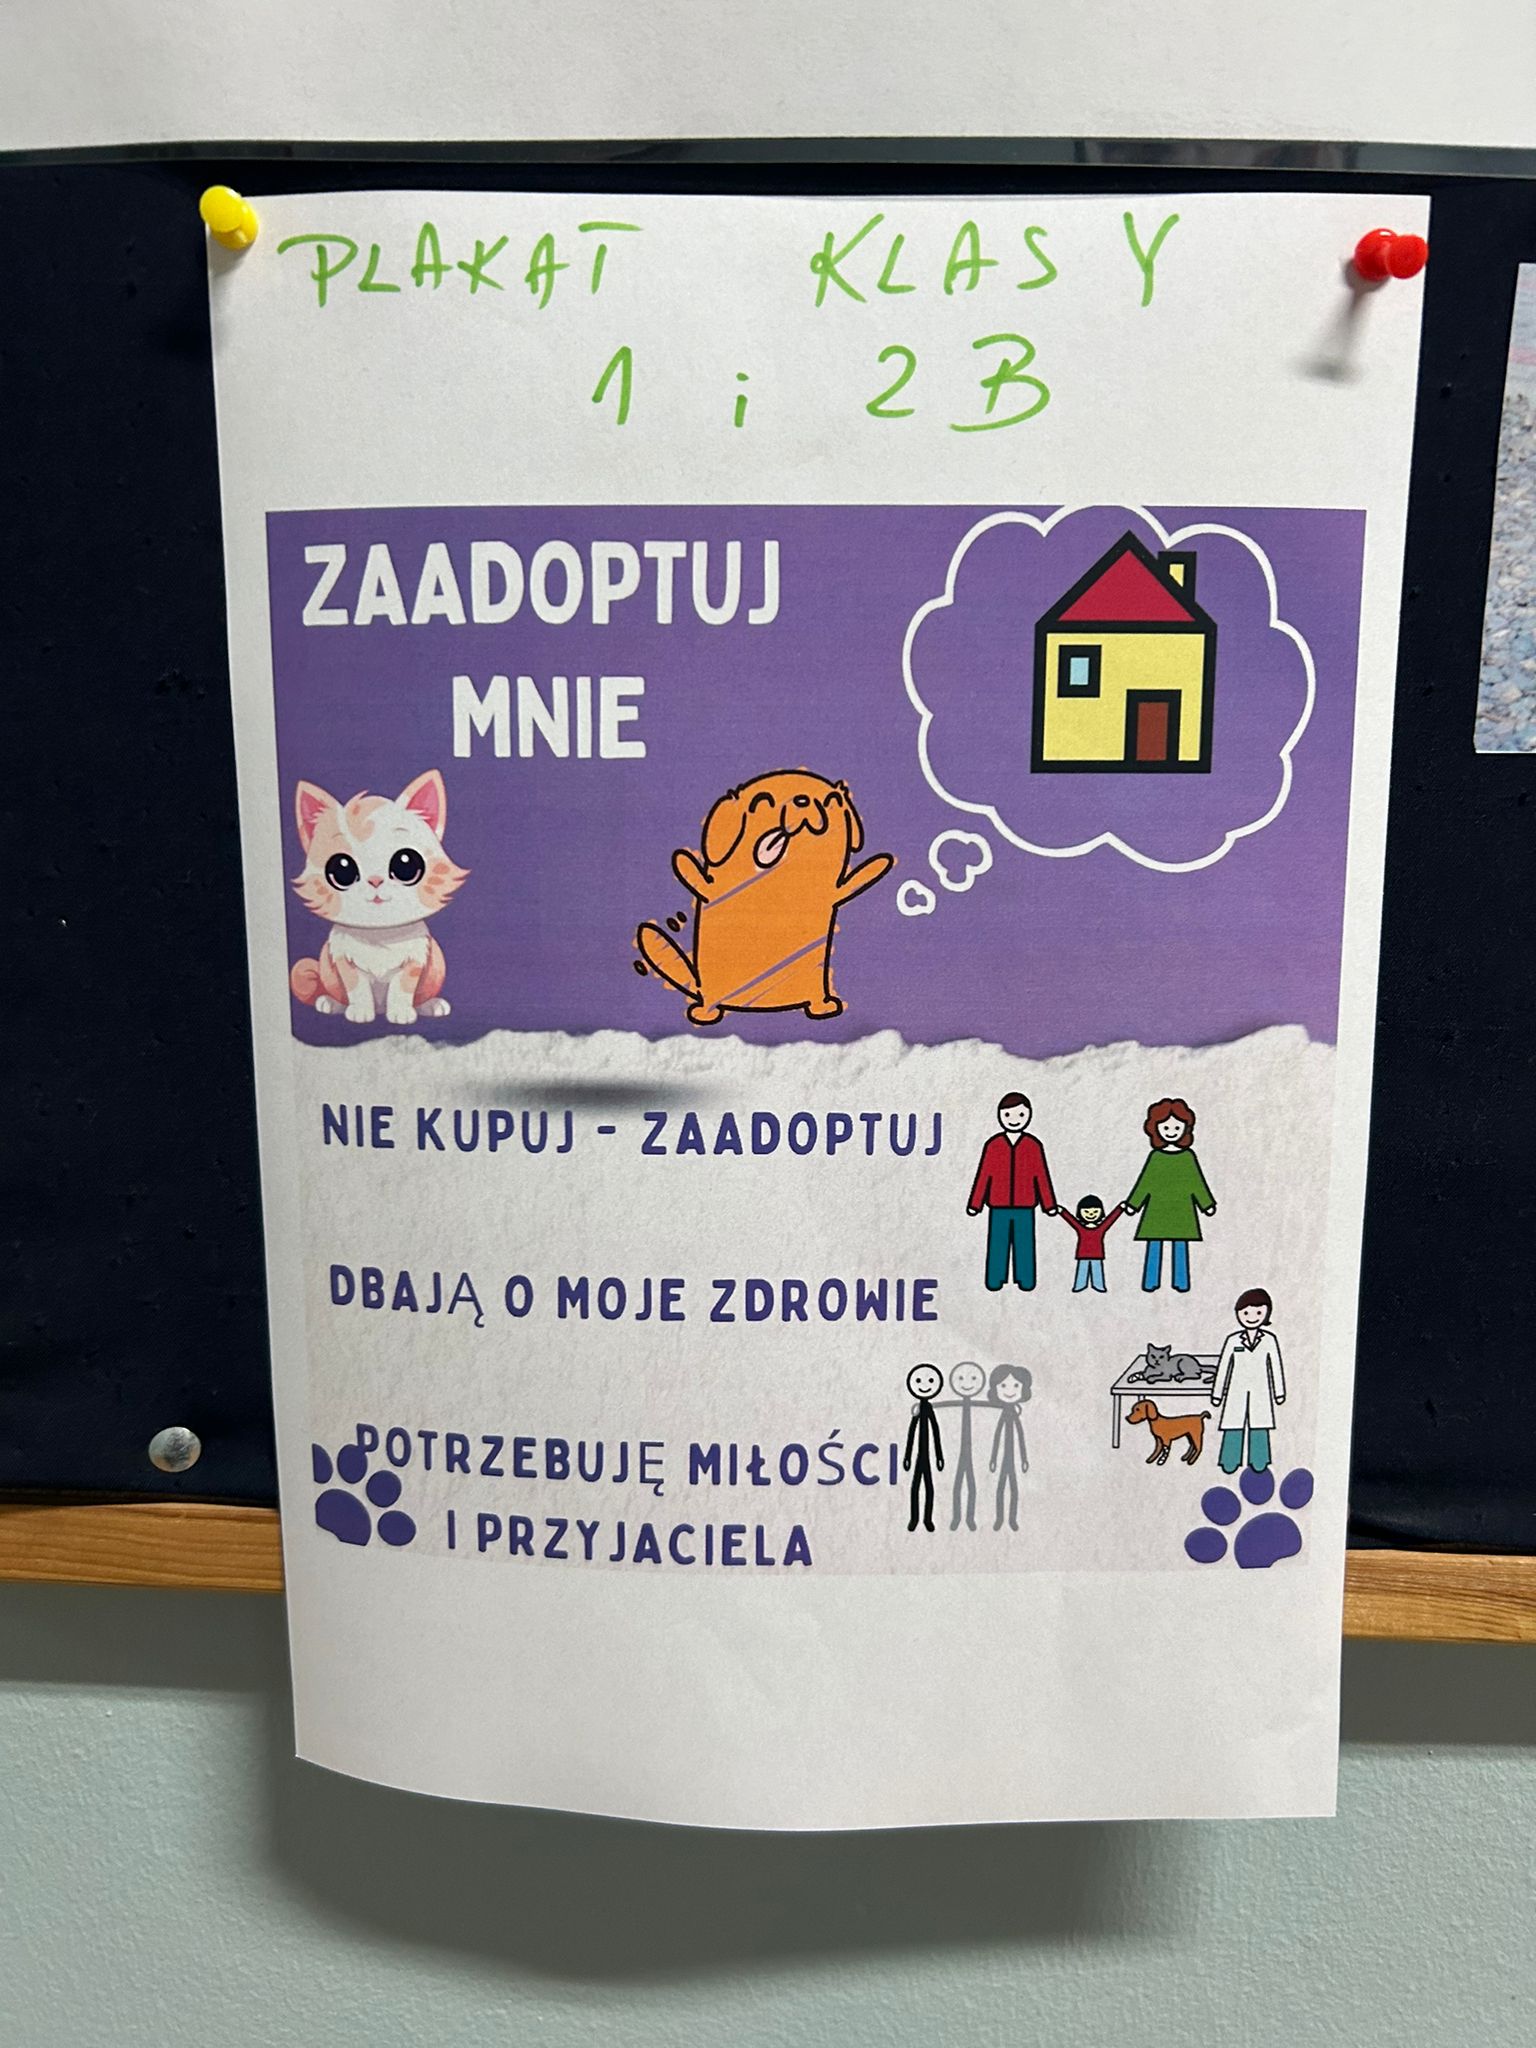 PLAKAT KLASY
1 i 2B
ZAADOPTUJ
MNIE
NIE KUPUJ - ZAADOPTUJ
DBAJĄ O MOJE ZDROWIE
POTRZEBUJĘ MIŁOŚCI
I PRZYJACIELA